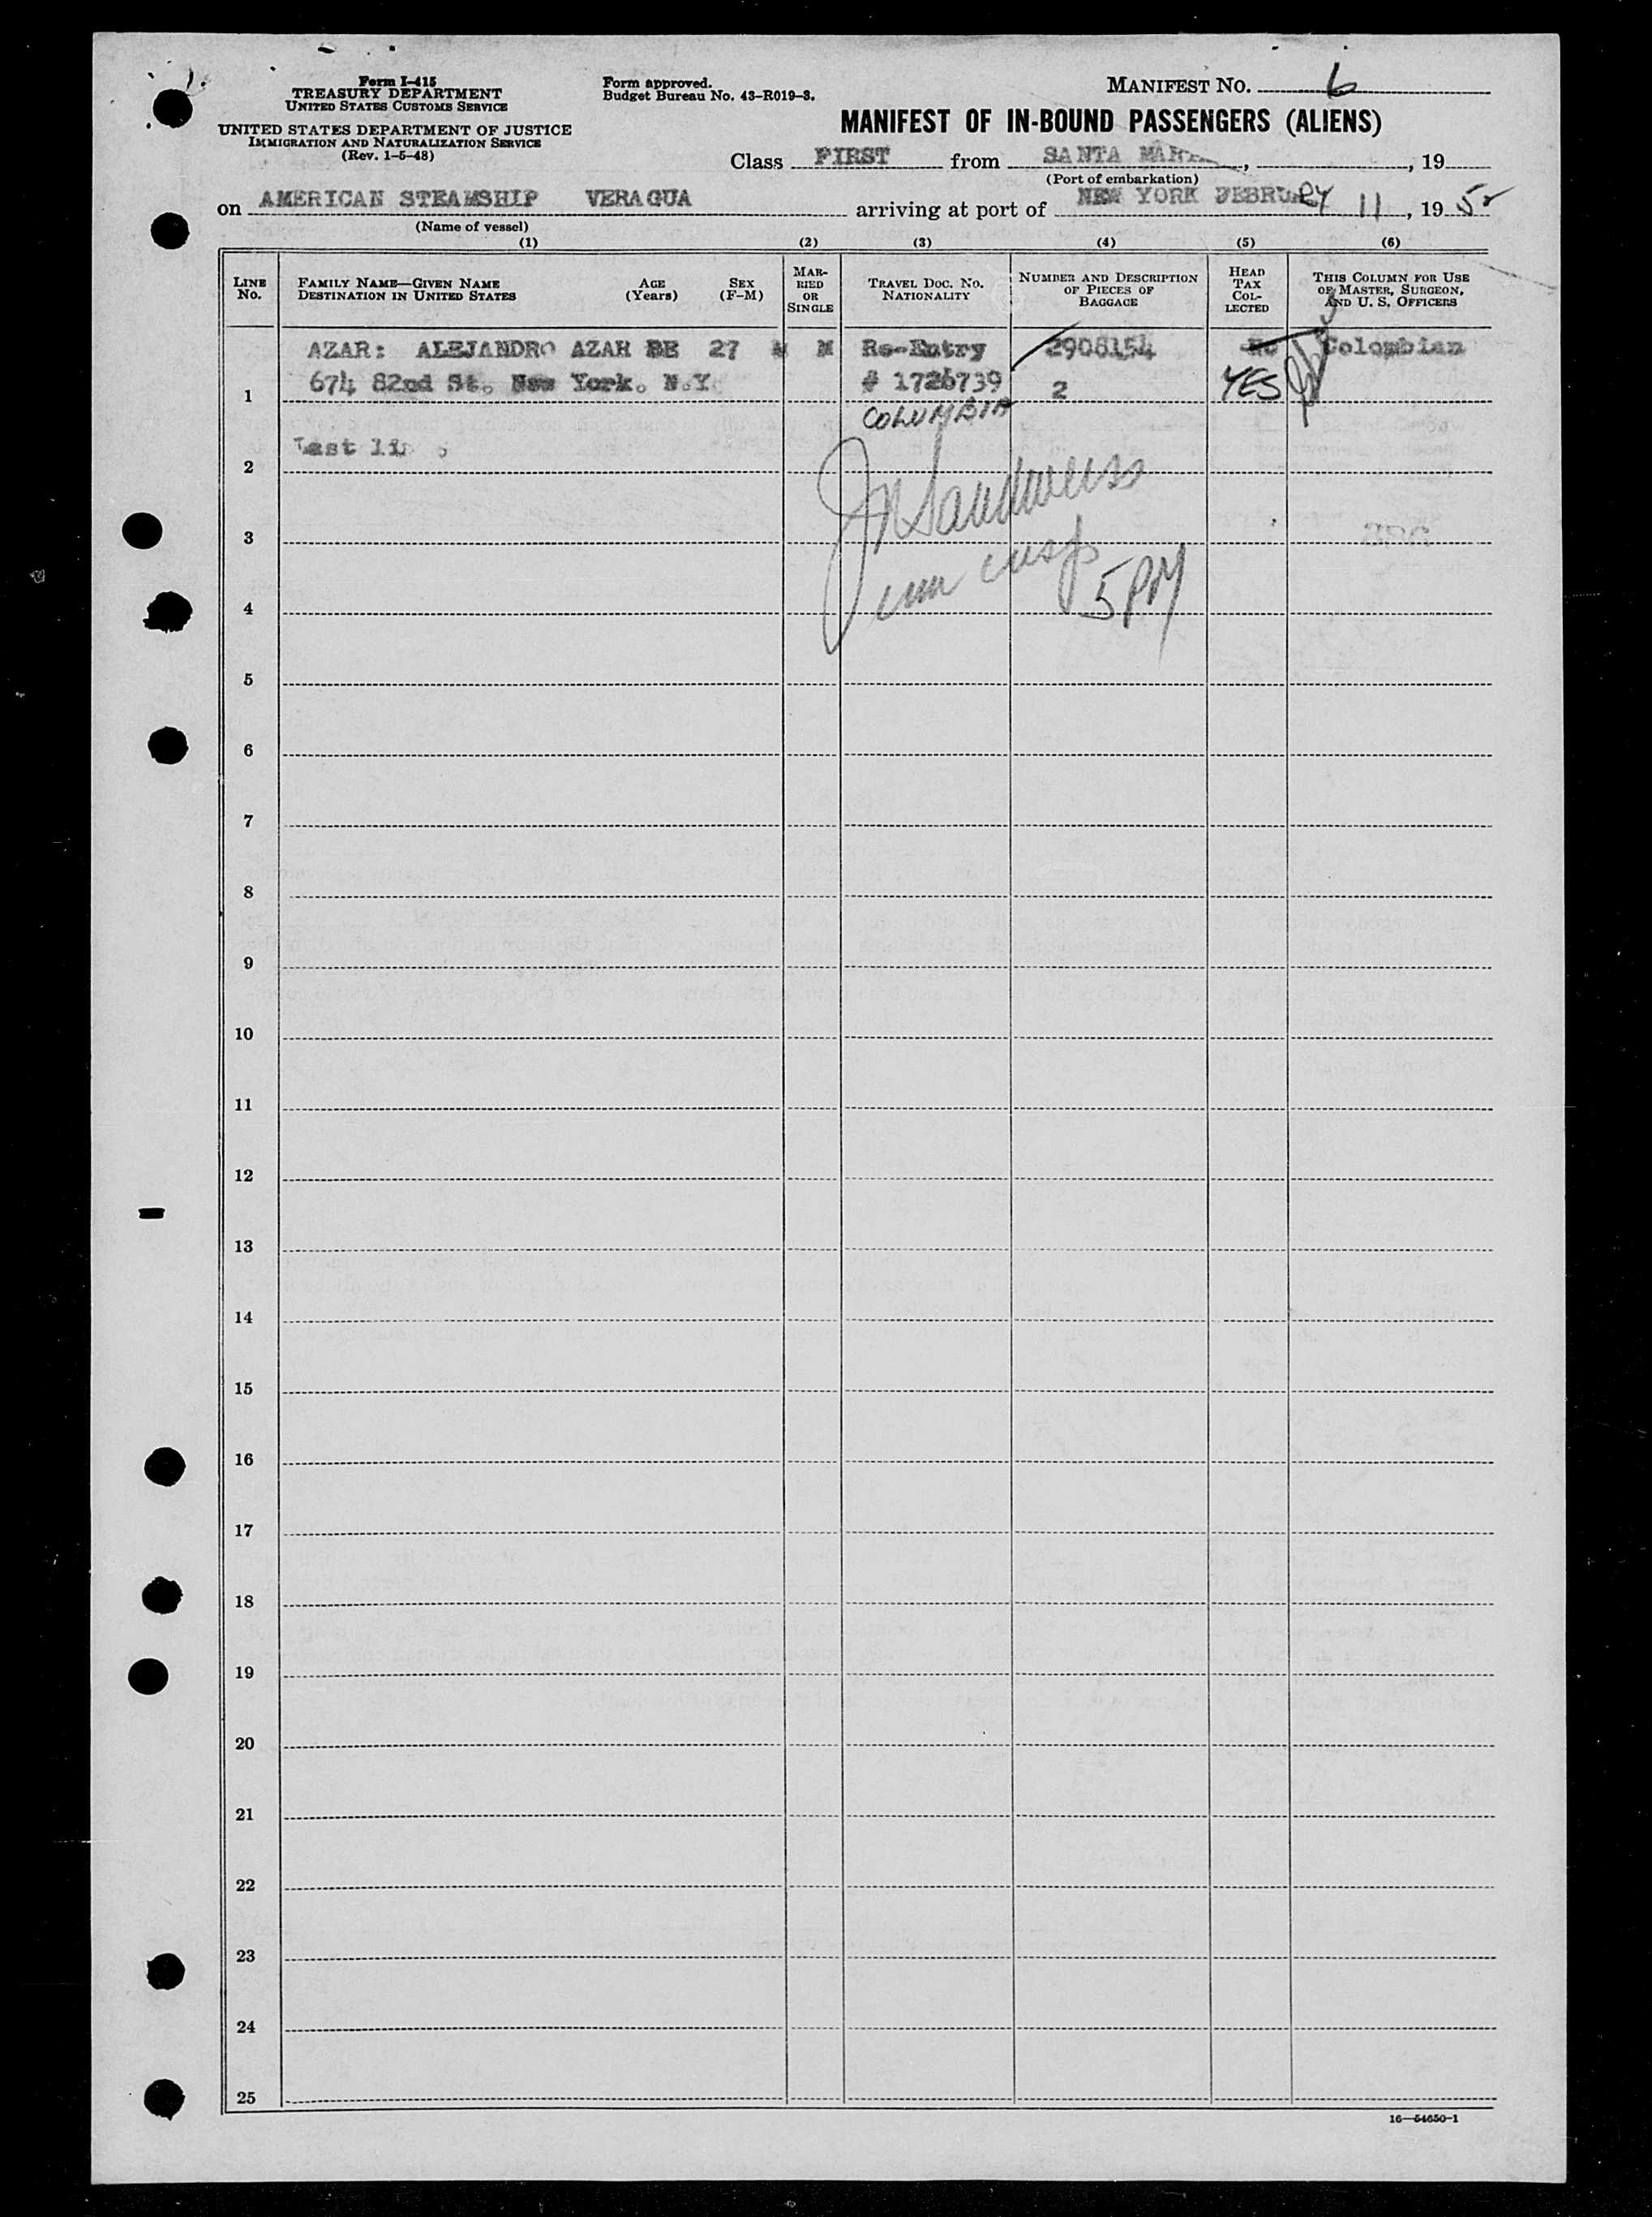 Form I-415
TREASURY DEPARTMENT
UNITED STATES CUSTOMS SERVICE
UNITED STATES DEPARTMENT OF JUSTICE
IMMIGRATION AND NATURALIZATION SERVICE
(Rev. 1-5-48)
Form approved.
Budget Bureau No. 43-R019-3.
MANIFEST NO. 6
MANIFEST OF IN-BOUND PASSENGERS (ALIENS)
Class FIRST from SANTA , , 19
(Port of embarkation)
on AMERICAN STEAMSHIP VERAGUA arriving at port of NEW YORK FEBRUARY 11, 19 50
(Name of vessel)
(1) (2) (3) (4) (5) (6)
LINE No.
FAMILY NAME—GIVEN NAME
DESTINATION IN UNITED STATES
AGE (Years)
SEX (F-M)
MARRIED OR SINGLE
TRAVEL DOC. NO.
NATIONALITY
NUMBER AND DESCRIPTION OF PIECES OF BAGGAGE
HEAD TAX COLLECTED
THIS COLUMN FOR USE OF MASTER, SURGEON, AND U. S. OFFICERS
AZAR: ALEJANDRO AZAR DE 27 M Re-Entry 2908154 No Colombian
1 674 82nd St. New York. N.Y. # 1726739 2 YES
COLUMBIA
Last
2
3
4 5 PM
5
6
7
8
9
10
11
12
13
14
15
16
17
18
19
20
21
22
23
24
25
16—54650-1